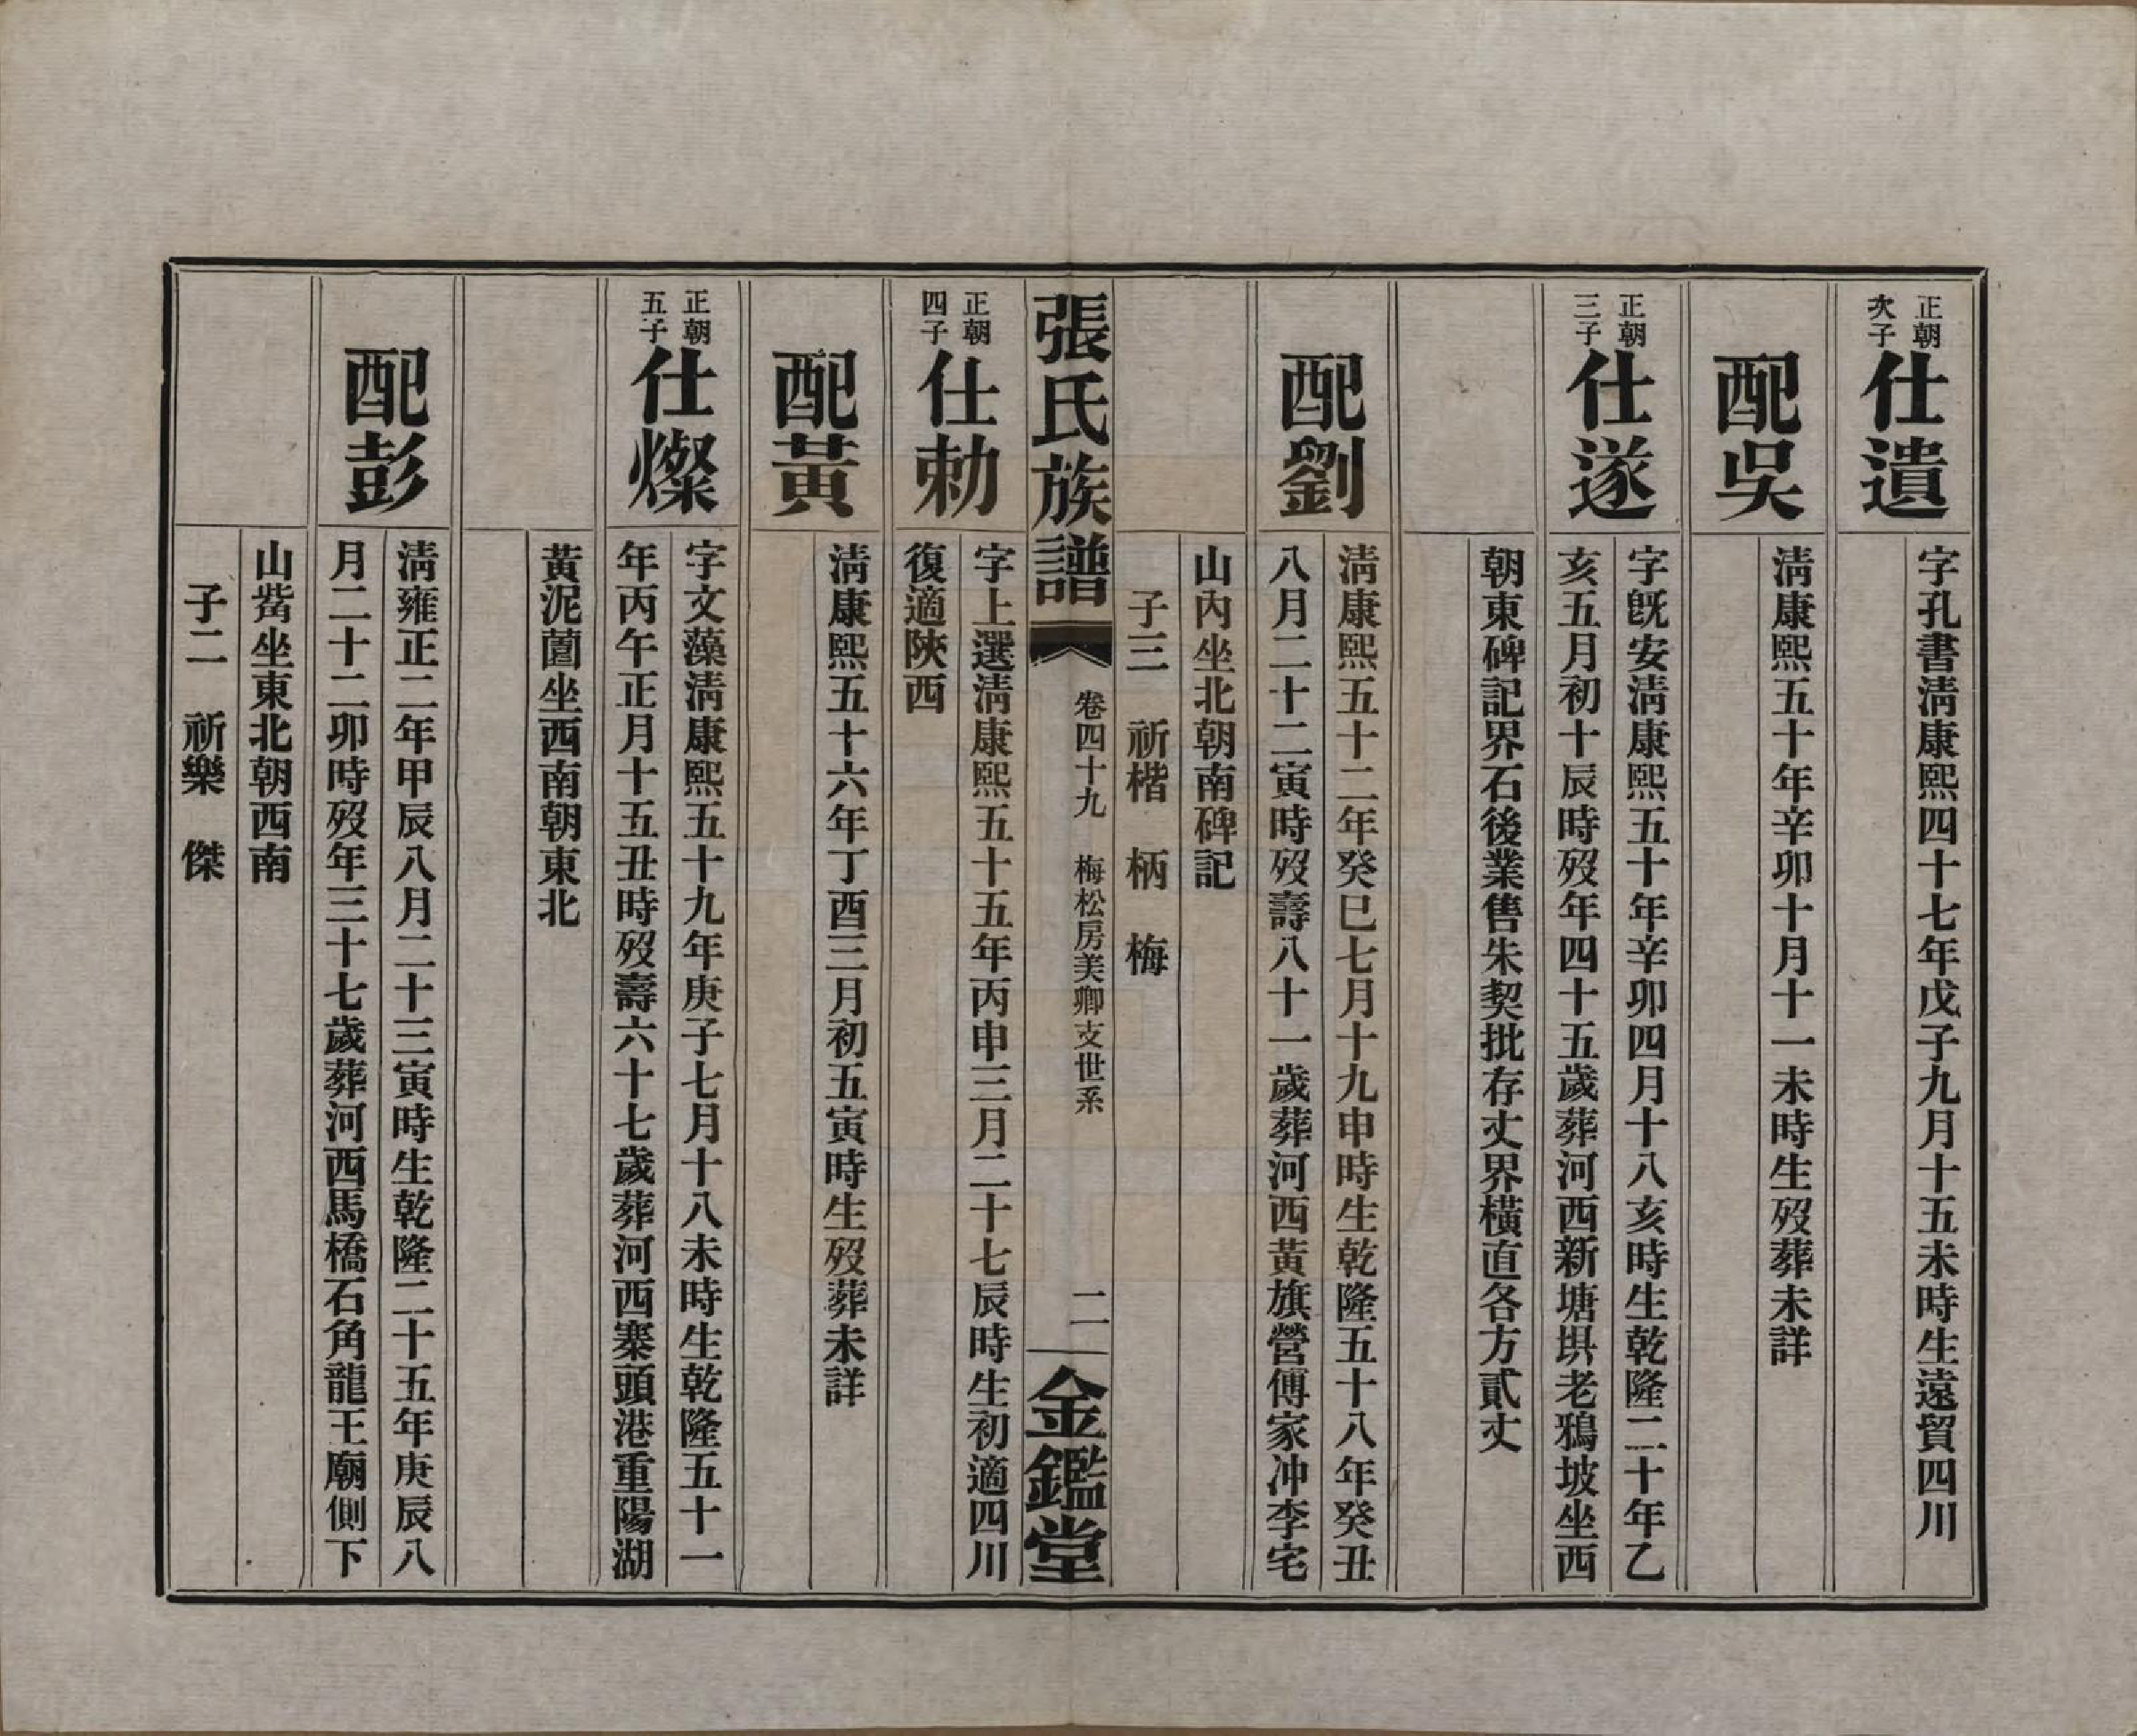 正朝
次子
仕遺
字孔書淸康熙四十七年戊子九月十五未時生遠貿四川
配吳
淸康熙五十年辛卯十月十一未時生歿葬未詳
正朝
三子
仕遂
字旣安淸康熙五十年辛卯四月十八亥時生乾隆二十年乙
亥五月初十辰時歿年四十五歲葬河西新塘垬老鴉坡坐西
朝東碑記界石後業售朱契批存丈界橫直各方貳丈
配劉
淸康熙五十二年癸巳七月十九申時生乾隆五十八年癸丑
八月二十二寅時歿壽八十一歲葬河西黃旗營傅家冲李宅
山內坐北朝南碑記
子三 祈楷 柄 梅
張氏族譜 卷四十九 梅松房美卿支世系 二 金鑑堂
正朝
四子
仕勅
字上選淸康熙五十五年丙申三月二十七辰時生初適四川
復適陝西
配黃
淸康熙五十六年丁酉三月初五寅時生歿葬未詳
正朝
五子
仕燦
字文藻淸康熙五十九年庚子七月十八未時生乾隆五十一
年丙午正月十五丑時歿壽六十七歲葬河西寨頭港重陽湖
黃泥薗坐西南朝東北
配彭
淸雍正二年甲辰八月二十三寅時生乾隆二十五年庚辰八
月二十二卯時歿年三十七歲葬河西馬橋石角龍王廟側下
山觜坐東北朝西南
子二 祈樂 傑